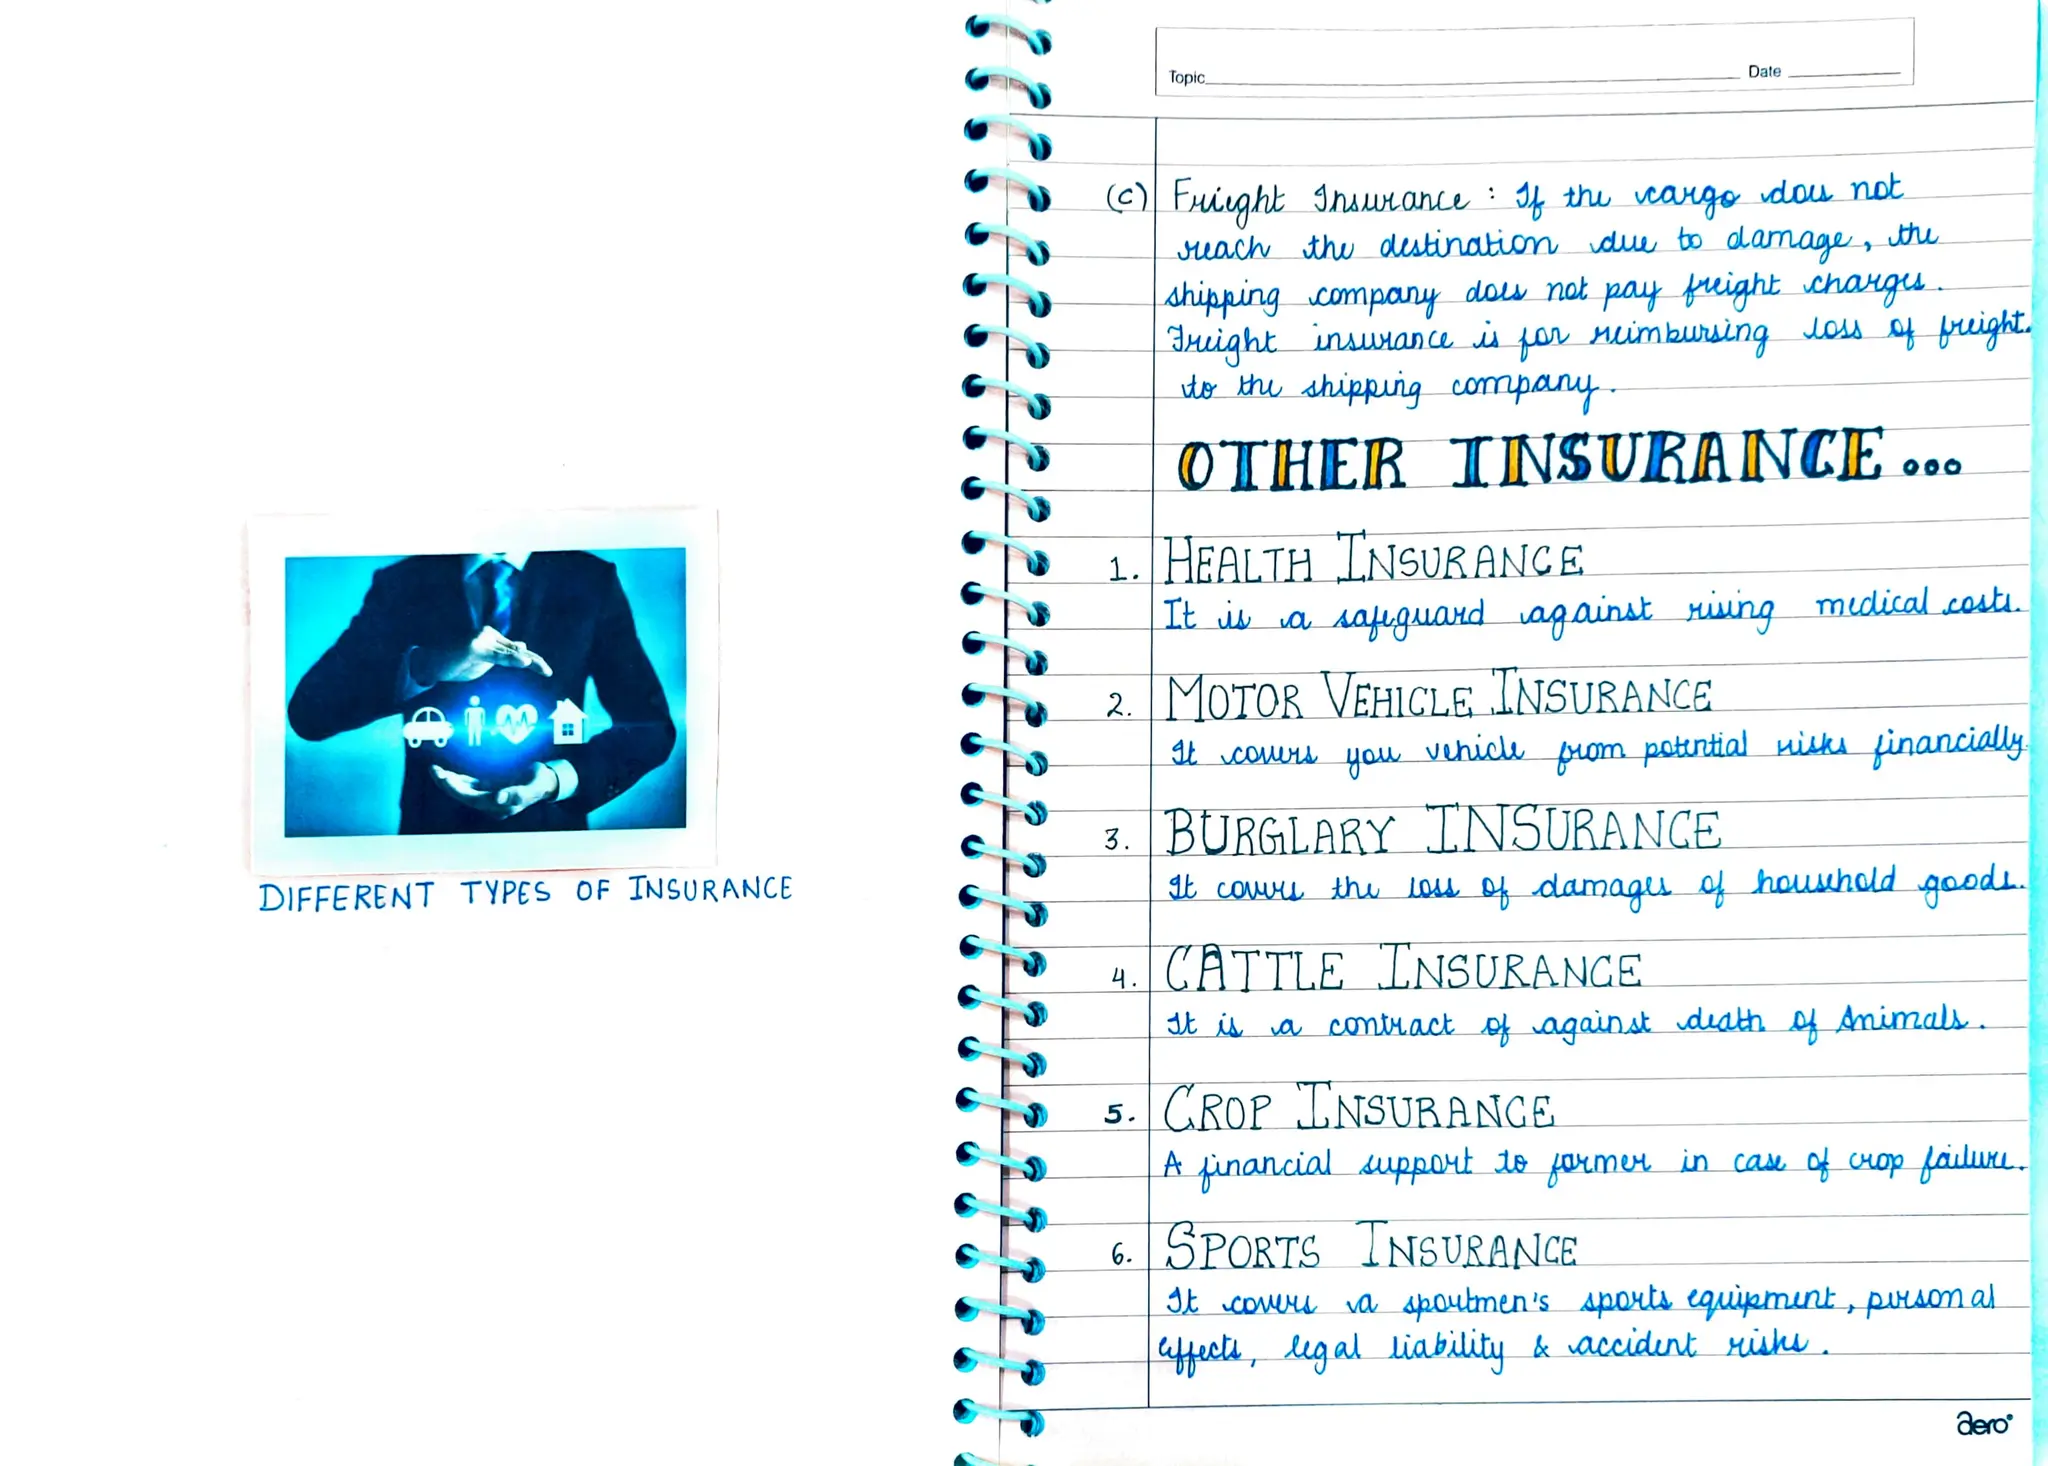 DIFFERENT TYPES OF INSURANCE
Topic Date
(C) Frieght Insurance : If the cargo does not
reach the destination due to damage, the
shipping company does not pay freight charges.
Freight insurance is for reimbursing loss of freight.
to the shipping company.
OTHER INSURANCE...
1. HEALTH INSURANCE
It is a safeguard against rising medical costs.
2. MOTOR VEHICLE INSURANCE
It covers you vehicle from potential risks financially
3. BURGLARY INSURANCE
It covers the loss of damages of household goods.
4. CATTLE INSURANCE
It is a contract of against death of Animals.
5. CROP INSURANCE
A financial support to farmer in case of crop failure.
6. SPORTS INSURANCE
It covers a sportmen's sports equipment, personal
effects, legal liability & accident risks.
aero